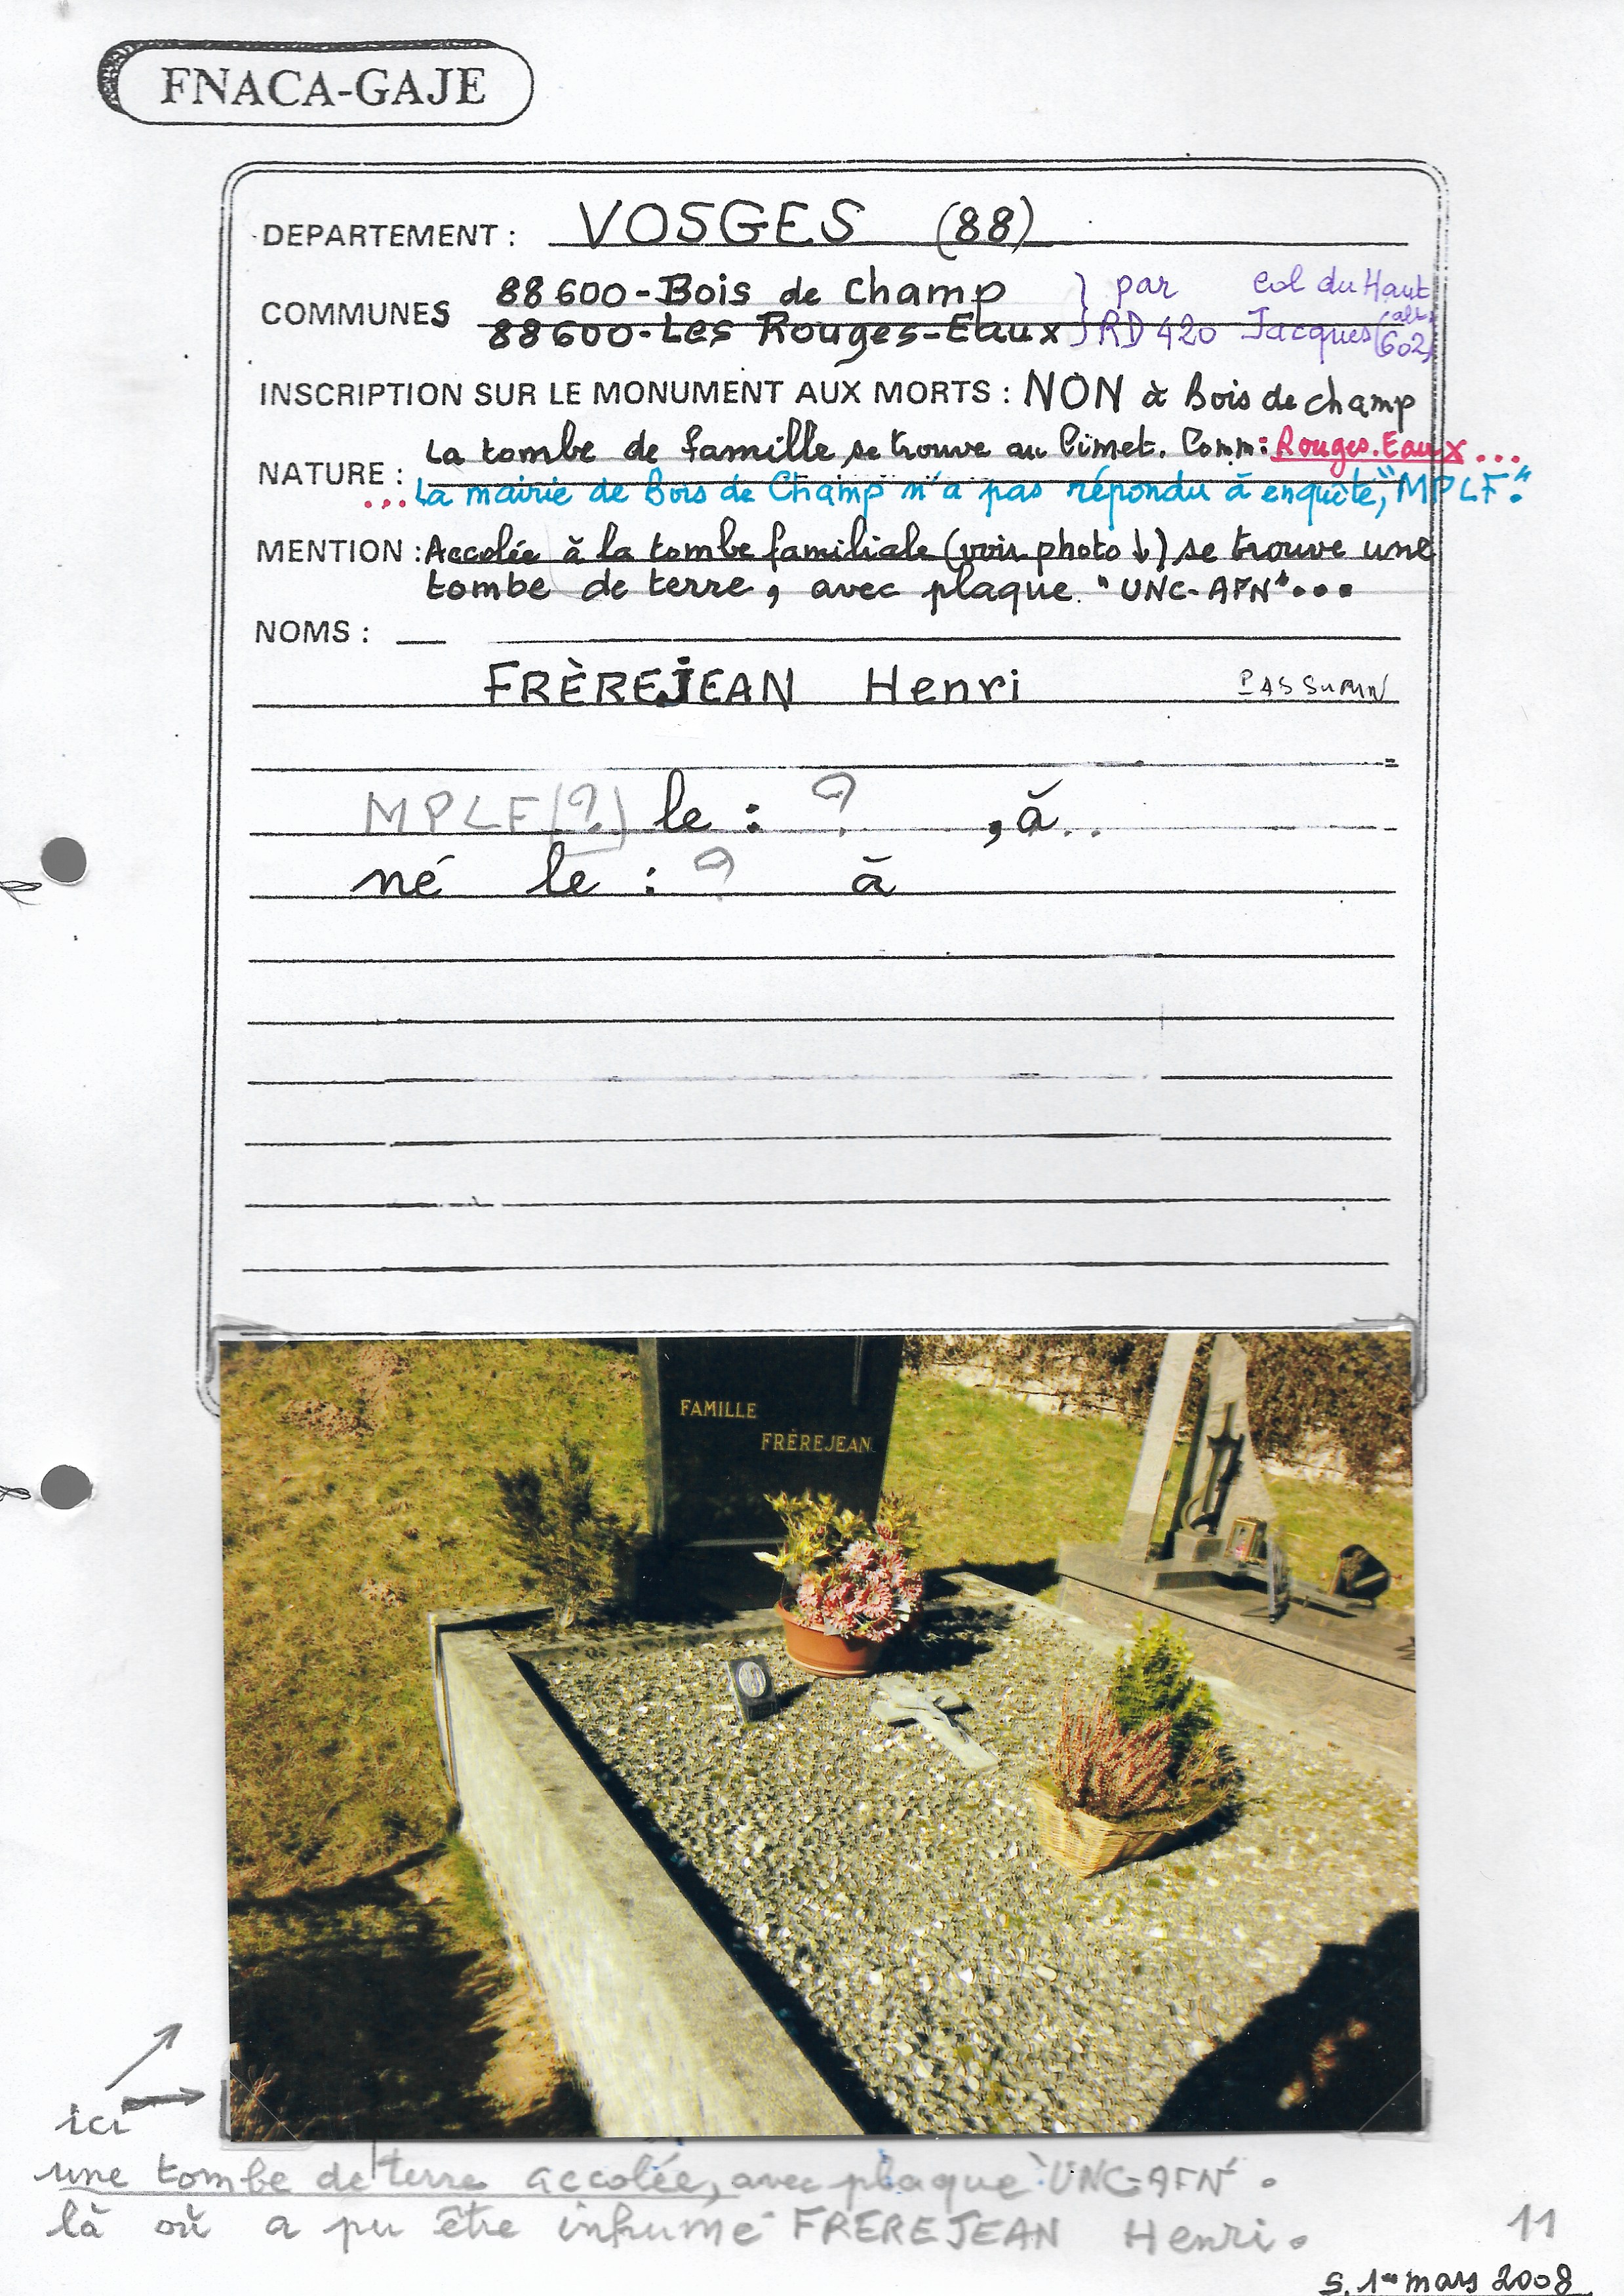 FNACA-GAJE
DEPARTEMENT : VOSGES (88)
COMMUNES 88600-Bois de Champ } par Col du Haut
88600-Les Rouges-Eaux } RD 420 Jacques (alt. 602)
INSCRIPTION SUR LE MONUMENT AUX MORTS : NON à Bois de champ
NATURE : La tombe de famille se trouve au Cimet. Comm: Rouges.Eaux...
...La mairie de Bois de Champ n'a pas répondu à enquête, "MPLF".
MENTION : Accolée à la tombe familiale (voir photo ↓) se trouve une
tombe de terre, avec plaque "UNC-AFN"...
NOMS :
FRÈREJEAN Henri PAS SUR MN
MPLF(?) le : ? , à..
né le : ? à
FAMILLE
FRÈREJEAN
ici
une tombe de terre accolée, avec plaque "UNC-AFN".
là où a pu être inhumé FREREJEAN Henri.
11
S. 1er mars 2008